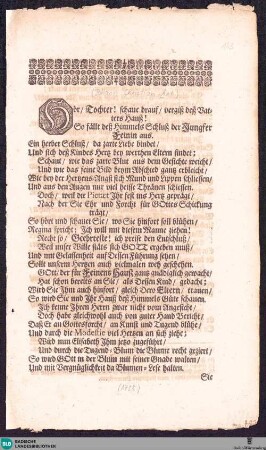 Höre / Tochter! schaue drauf / vergiß deß Vat-
ters Hauß!
So fällt deß Himmels Schluß der Jungfer
Feinin aus.
Ein herber Schluß / da zarte Liebe bindet /
Und sich deß Kindes Hertz bey werthen Eltern findet:
Schaut / wie das zarte Blut aus dem Gesichte weicht /
Und wie das feine Bild beym Abschied gantz erbleicht /
Wie bey der Hertzens-Angst sich Mund und Lippen schliessen /
Und aus den Augen nur viel heisse Thränen schiessen.
Doch / weil die Pietät Ihr fest ins Hertz geprägt /
Nach der Sie Ehr und Forcht für GOttes Schickung
trägt /
So hört und schauet Sie / wo Sie hinfort soll blühen /
Regina spricht: Ich will mit diesem Manne ziehen!
Recht so / Geehrteste! ich preise den Entschluß /
Weil unser Wille stäts sich GOTT ergeben muß /
Und mit Gelassenheit auf Dessen Führung sehen /
Sollte unserm Hertzen auch vielmalen weh geschehen.
GOtt / der für Feinens Hauß gantz gnädiglich gewacht /
Hat schon bereits an Sie / als Dessen Kind / gedacht;
Wird Sie Ihm auch hinfort / gleich Dero Eltern / trauen /
So wird Sie und Ihr Hauß deß Himmels Güte schauen.
Ich kenne Ihren Herrn zwar nicht vom Angesicht /
Doch habe gleichwohl auch von guter Hand Bericht /
Daß Er an Gottesforcht / an Kunst und Tugend blühe /
Und durch die Modestie viel Hertzen an sich ziehe;
Wird nun Elisabeth Ihm jetzo zugeführt /
Und durch die Tugend-Blum die Blume recht geziert /
So wird GOtt in der Blum mit seiner Gnade walten /
Und mit Vergnüglichkeit da Blumen-Lese halten.
Sie
BLB
BADISCHE
LANDESBIBLIOTHEK